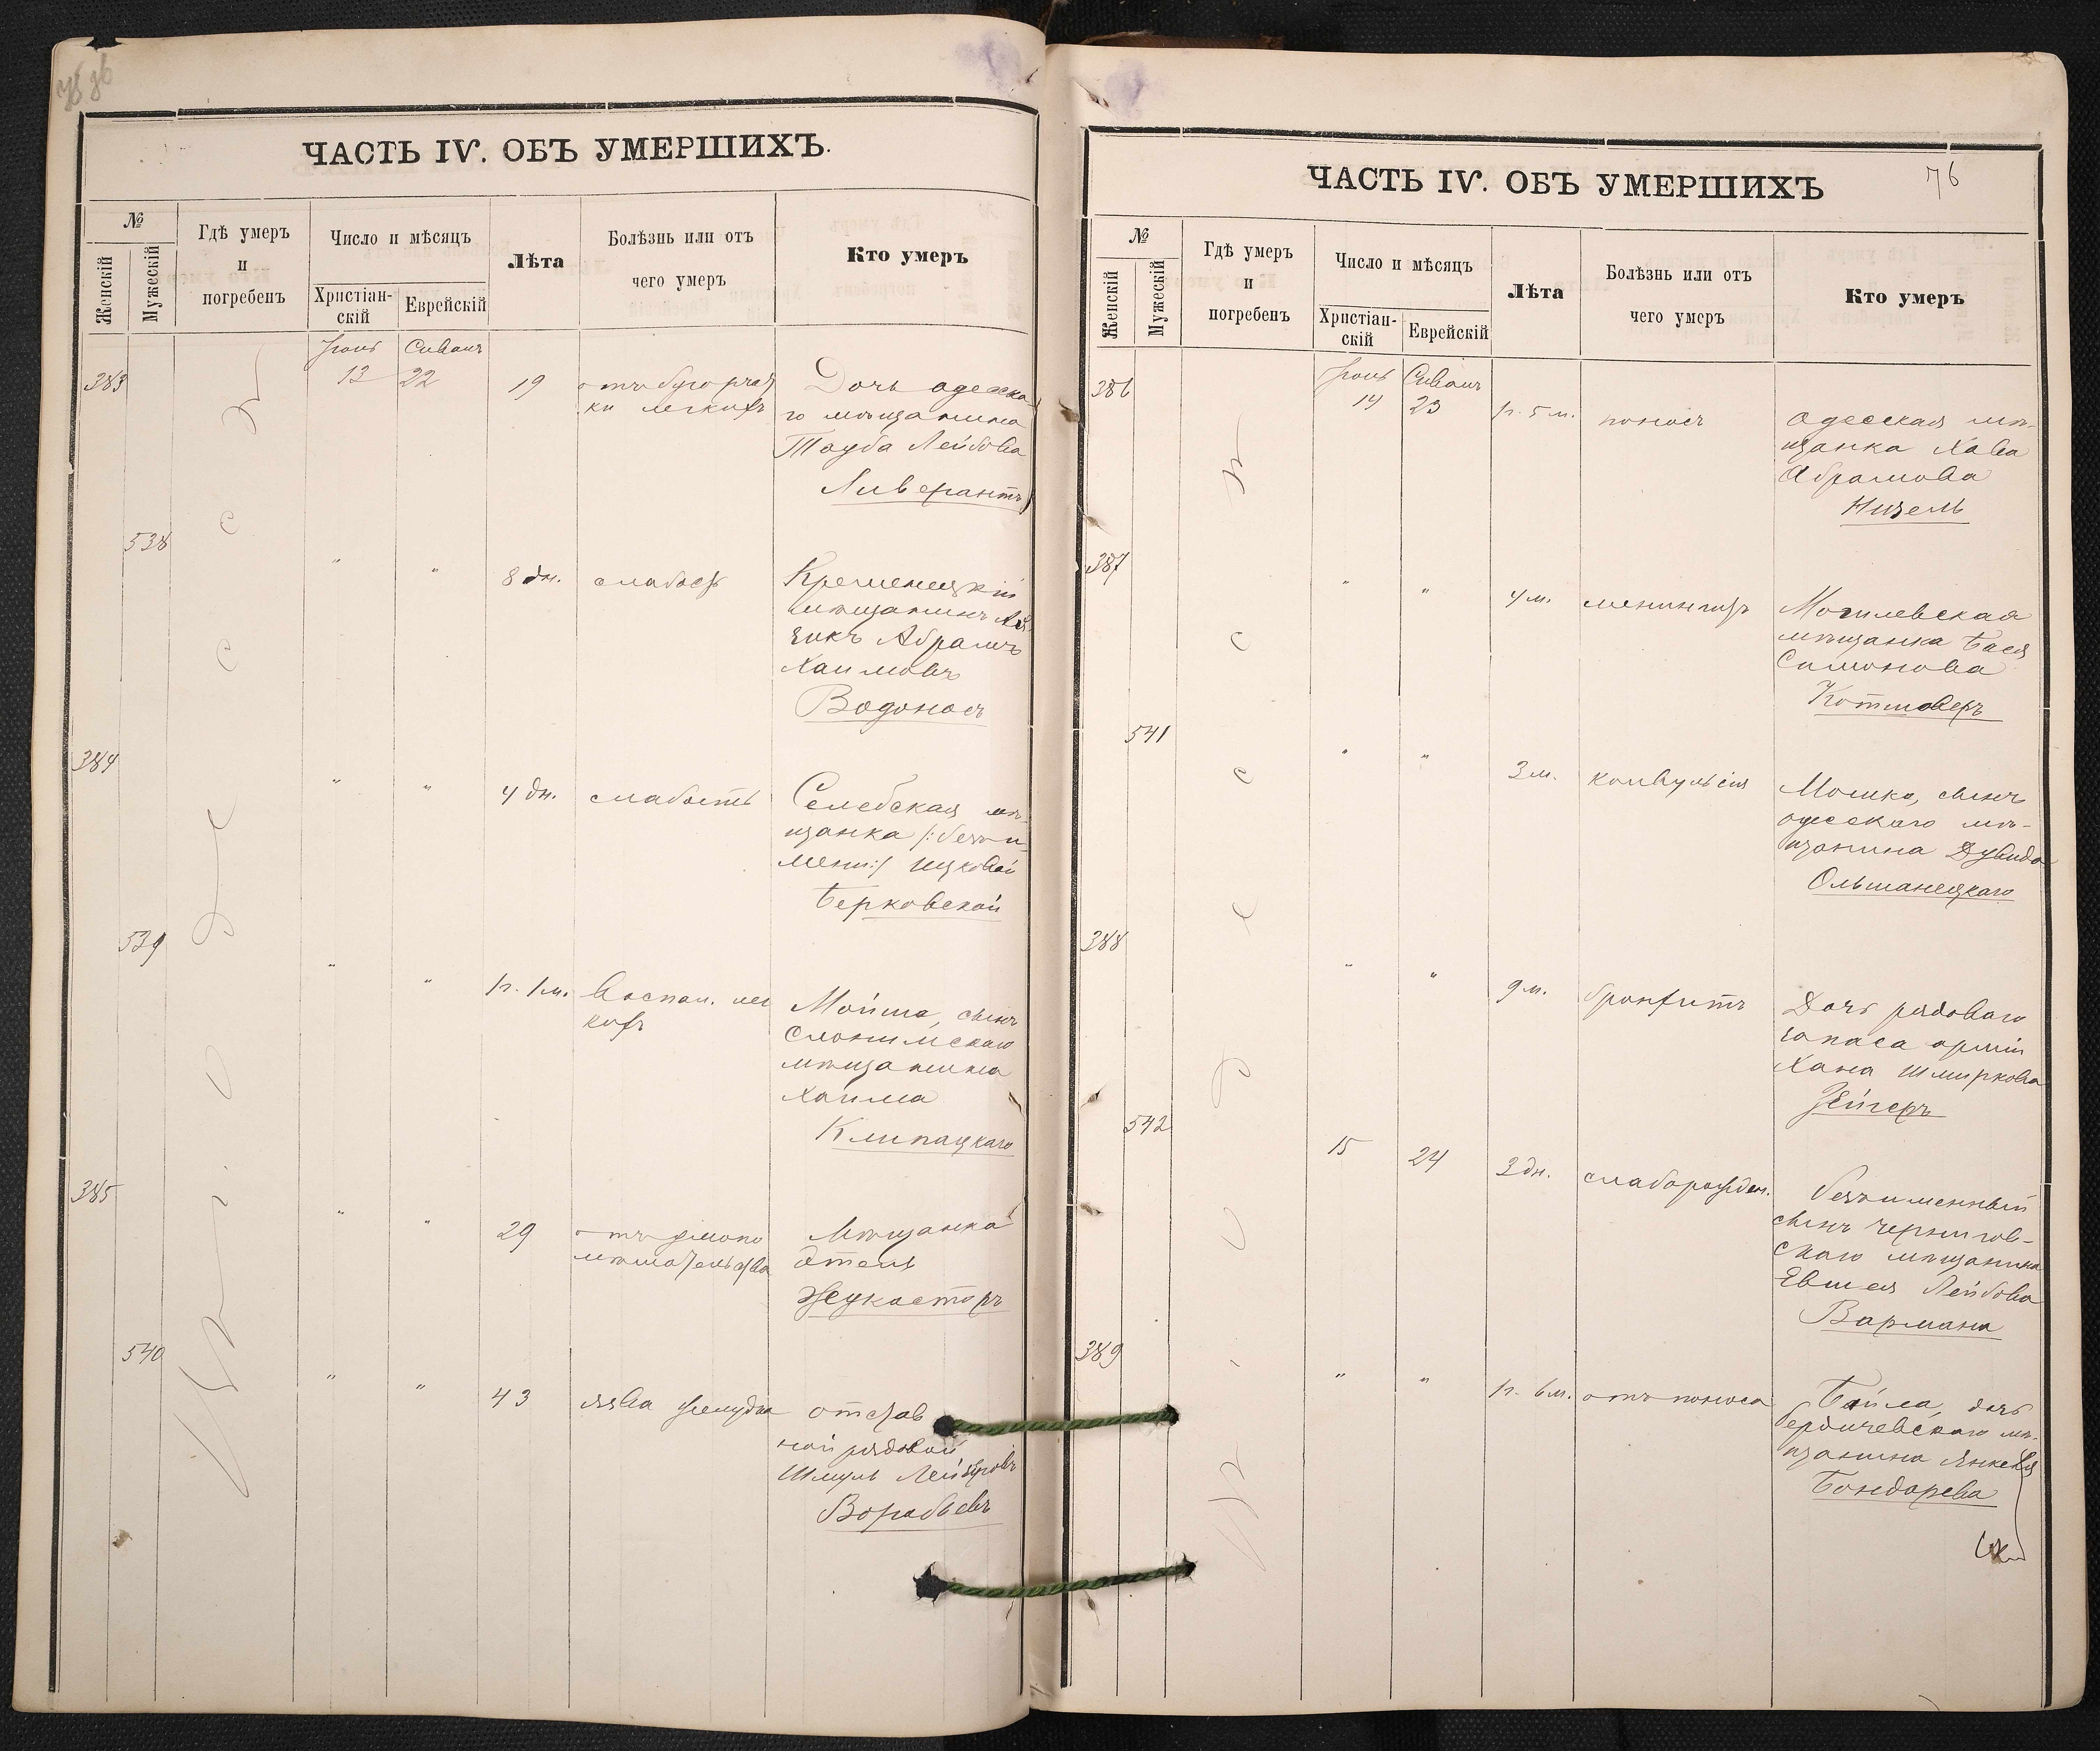 ЧАСТЬ IV. ОБЪ УМЕРШИХЪ.
№
Женскій
Мужескій
Гдѣ умеръ
и
погребенъ
Число и мѣсяцъ
Христіан-
скій
Еврейскій
Лѣта
Болѣзнь или отъ
чего умеръ
Кто умеръ
въ г. Одессѣ
Іюнь Сиванъ
383
13 22
19
отъ бугорчат
ки легкихъ
Дочь одесска
го мѣщанина
Тауба Лейбова
Ливерантъ
538
" "
8 дн.
слабость
Кременецкій
мѣщанинъ Ай
зикъ Абрамъ
Хаимовъ
Водоносъ
384
" "
4 дн.
слабость
мѣ-
щанка /:безъ и-
мени:/ Ицковой
Берковской
539
" "
1 г. 1 м.
Воспал. лег
кихъ
Мойше, сынъ
Слонимскаго
мѣщанина
Хаима
Клипацкаго
385
" "
29
отъ
Мѣщанка
Этель
540
" "
43
язва желудка
отстав
ной рядовой
Шмуль Лейзеровъ
Воробьевъ
ЧАСТЬ IV. ОБЪ УМЕРШИХЪ
76
№
Женскій
Мужескій
Гдѣ умеръ
и
погребенъ
Число и мѣсяцъ
Христіан-
скій
Еврейскій
Лѣта
Болѣзнь или отъ
чего умеръ
Кто умеръ
въ г. Одессѣ
Іюнь Сиванъ
386
14 23
1 г. 5 м.
поносъ
Одесская мѣ-
щанка Хава
Абрамова
Низель
387
" "
4 м.
менингитъ
Могилевская
мѣщанка Бася
Симонова
Котловеръ
541
" "
3 м.
конвульсія
Мошко, сынъ
одесскаго мѣ-
щанина Дувида
Ольшанецкаго
388
" "
9 м.
бронхитъ
Дочь рядоваго
запаса арміи
Хана Шмиркова
Зейгеръ
542
15 24
3 дн.
слаборожден.
безъименный
сынъ чернигов-
скаго мѣщанина
Евшея Лейбова
Вармана
389
" "
1 г. 6 м.
отъ поноса
Бейла, дочь
бердичевскаго мѣ-
щанина Янкеля
Бондарева